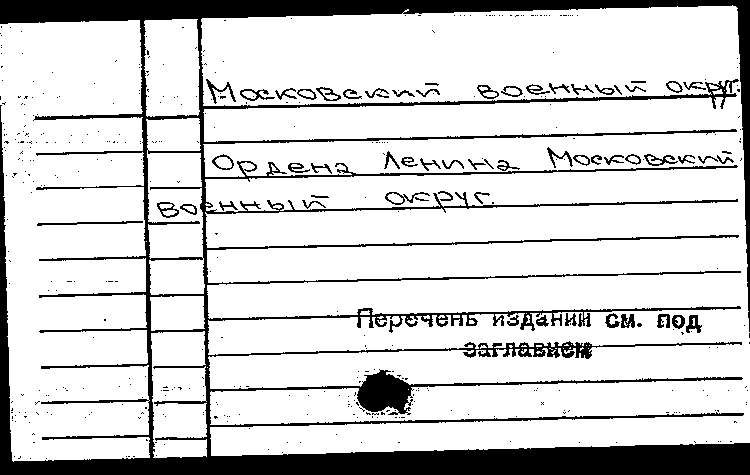 Московский военный округ.
Ордена Ленина Московский
военный округ.
Перечень изданий см. под
заглавием